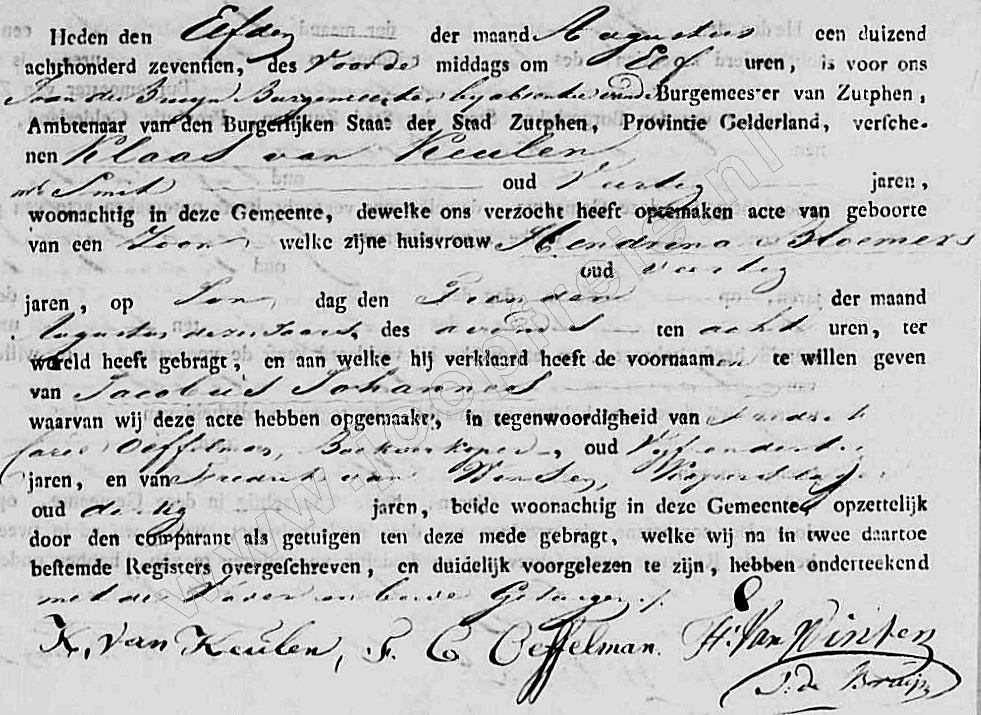 Heden den Elfden der maand Augustus een duizend
achthonderd zeventien, des Voorde middags om Elf uren, is voor ons
Burgemeester by absentie Burgemeester van Zutphen,
Ambtenaar van den Burgerlijken Staat der Stad Zutphen, Provintie Gelderland, versche-
nen Klaas van Keulen,
Smid oud Veertig jaren,
woonachtig in deze Gemeente, dewelke ons verzocht heeft optemaken acte van geboorte
van een Zoon welke zijne huisvrouw Hendrina Bloemers
oud veertig
jaren, op dag den Tienden der maand
Augustus dezes Jaars, des avonds ten acht uren, ter
wereld heeft gebragt, en aan welke hij verklaard heeft de voornaamen te willen geven
van Jacobus Johannes
waarvan wij deze acte hebben opgemaakt, in tegenwoordigheid van
Oeffelman, Boekverkoper, oud Vijfendertig
jaren, en van Fredrik van
oud dertig jaren, beide woonachtig in deze Gemeente, opzettelijk
door den comparant als getuigen ten deze mede gebragt, welke wij na in twee daartoe
bestemde Registers overgeschreven, en duidelijk voorgelezen te zijn, hebben onderteekend
met den Vader en beide Getuigen
K, van Keulen, F. C. Oeffelman. van Winsen
J. de Bruijn
www.loopfrein.nl